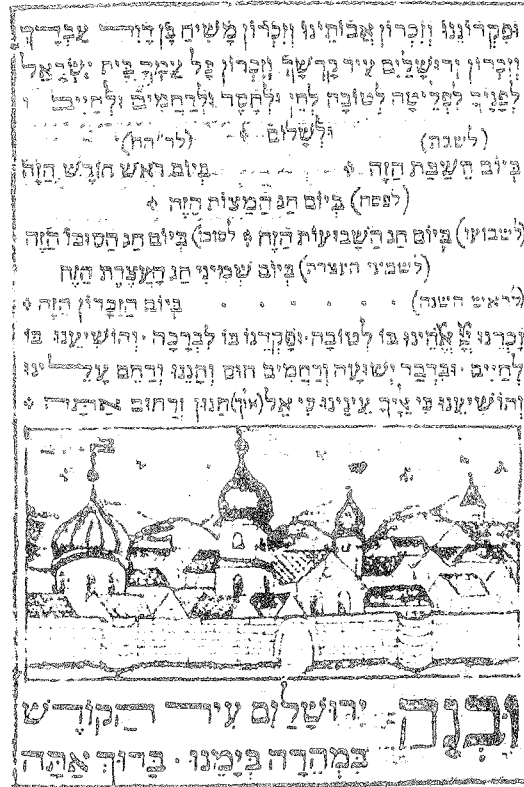 וּפִקְדוֹנֵנוּ וְזִכְרוֹן אֲבוֹתֵינוּ וְזִכְרוֹן מָשִׁיחַ בֶּן דָּוִד עַבְדֶּךָ
וְזִכְרוֹן יְרוּשָׁלַיִם עִיר קָדְשֶׁךָ וְזִכְרוֹן כָּל עַמְּךָ בֵּית יִשְׂרָאֵל
לְפָנֶיךָ לִפְלֵיטָה לְטוֹבָה לְחֵן וּלְחֶסֶד וּלְרַחֲמִים וּלְחַיִּים
וּלְשָׁלוֹם
(לשבת) (לר״הח)
בְּיוֹם הַשַּׁבָּת הַזֶּה בְּיוֹם רֹאשׁ חוֹדֶשׁ הַזֶּה
(לפסח) בְּיוֹם חַג הַמַּצּוֹת הַזֶּה
(לשבועו) בְּיוֹם חַג הַשָּׁבוּעוֹת הַזֶּה (לסוכו) בְּיוֹם חַג הַסּוּכּוֹ הַזֶּה
(לשמיני העצרה) בְּיוֹם שְׁמִינִי חַג הָעֲצֶרֶת הַזֶּה
(לראש השנה) בְּיוֹם הַזִּכָּרוֹן הַזֶּה
זָכְרֵנוּ יְיָ אֱלֹהֵינוּ בּוֹ לְטוֹבָה וּפָקְדֵנוּ בוֹ לִבְרָכָה וְהוֹשִׁיעֵנוּ בוֹ
לְחַיִּים וּבִדְבַר יְשׁוּעָה וְרַחֲמִים חוּס וְחָנֵּנוּ וְרַחֵם עָלֵינוּ
וְהוֹשִׁיעֵנוּ כִּי אֵלֶיךָ עֵינֵינוּ כִּי אֵל (מלך) חַנּוּן וְרַחוּם אַתָּה
וּבְנֵה יְרוּשָׁלַיִם עִיר הַקּוֹדֶשׁ
בִּמְהֵרָה בְּיָמֵינוּ בָּרוּךְ אַתָּה